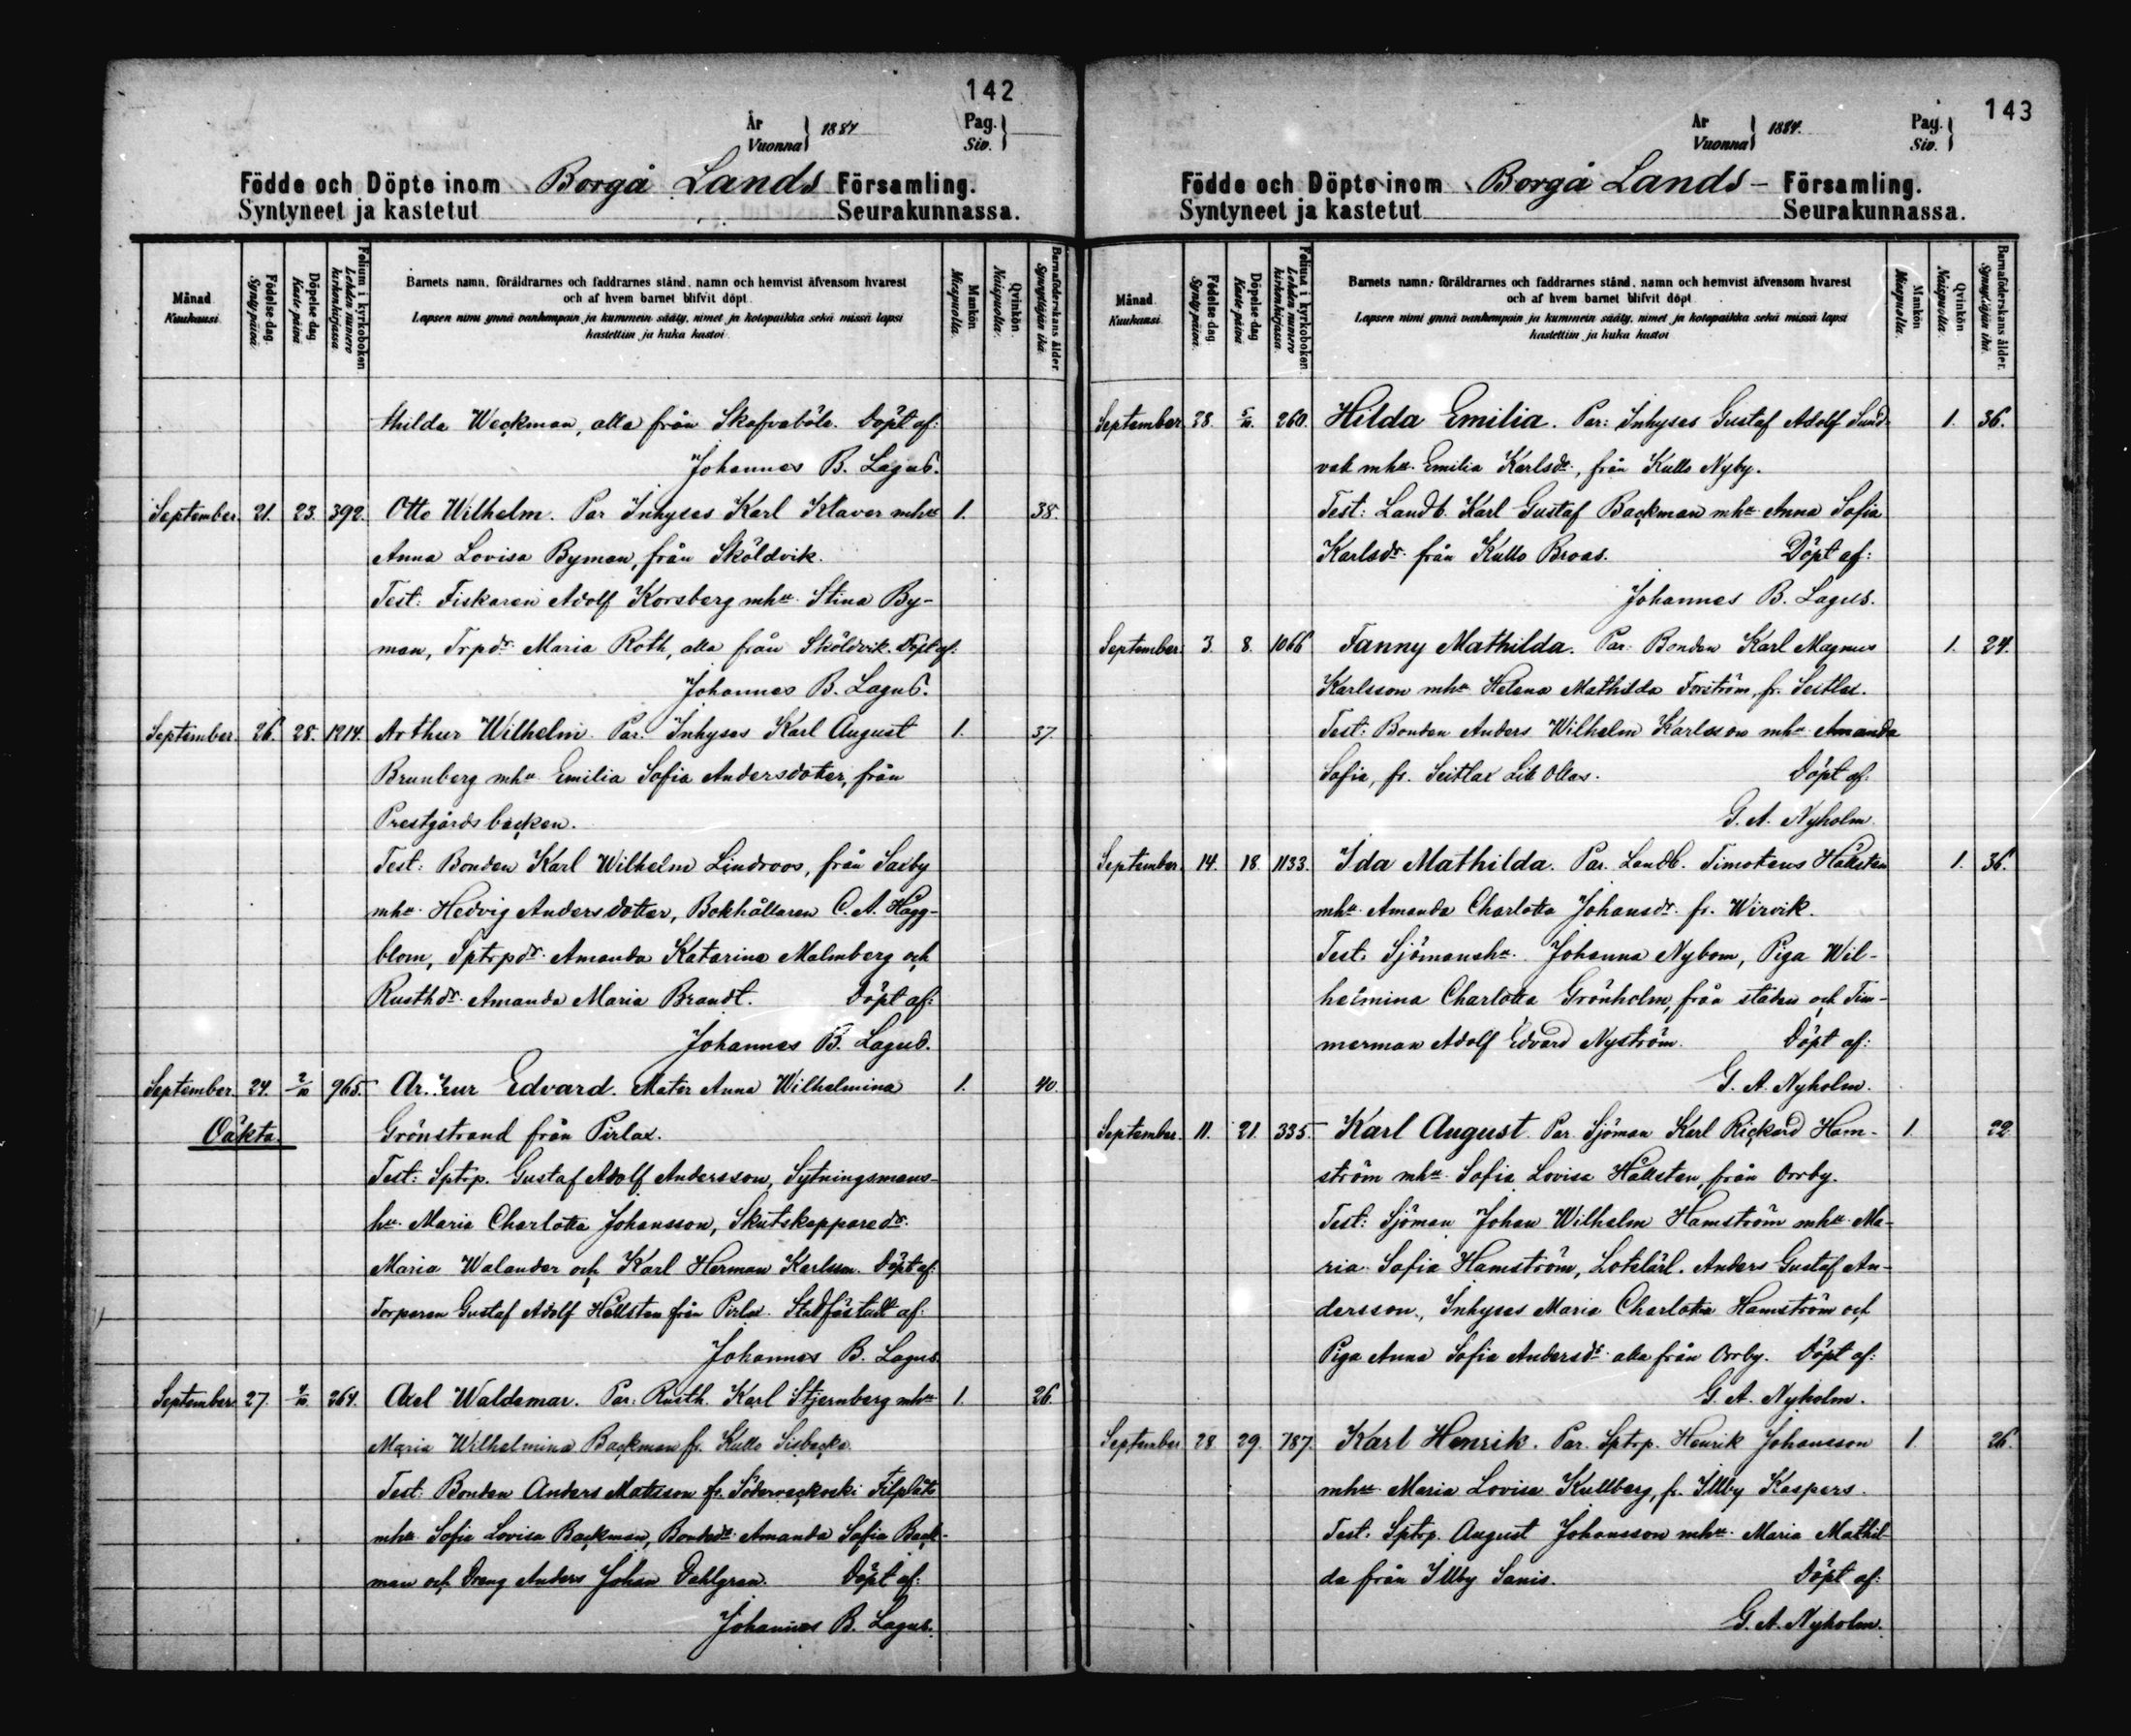 142
År
Vuonna
1884
Pag.
Siv.
Födde och Döpte inom Borgå Lands Församling.
Syntyneet ja kastetut Seurakunnassa.
Månad
Kuukausi
Födelse dag.
Synty päivä.
Döpelse dag
Kaste päivä
Folium i kyrkoboken
Lehden numero kirkonkirjassa
Barnets namn, föräldrarnes och faddrarnes stånd, namn och hemvist äfvensom hvarest
och af hvem barnet blifvit döpt.
Lapsen nimi ynnä vanhempain ja kummein sääty, nimet ja kotopaikka sekä missä lapsi
kastettiin ja kuka kastoi
Mankön
Miespuolta.
Qvinkön
Naispuolta.
Barnaföderskans ålder
Synnyttäjän ikä.
Hilda Weckman, alla från Skafvaböle. Döpt af:
Johannes B. Lagus.
September. 21. 23. 392. Otto Wilhelm. Par Inhyses Karl Klaver mhu 1. 38.
Anna Lovisa Byman, från Sköldvik.
Test: Fiskaren Adolf Korsberg mhu Stina By-
man, Trpdr Maria Roth, alla från Sköldvik. Döpt af:
Johannes B. Lagus.
September. 26. 28. 1214. Arthur Wilhelm. Par. Inhyses Karl August 1. 37.
Brunberg mhu Emilia Sofia Andersdotter, från
Prestgårdsbacken.
Test: Bonden Karl Wilhelm Lindroos, från Saxby
mhu Hedvig Andersdotter, Bokhållaren C. A. Hägg-
blom, Sptrpdr Amanda Katarina Malmberg och
Rusthdr Amanda Maria Brandt. Döpt af:
Johannes B. Lagus.
September. 24. 2/10 965. Ar..ur Edvard. Mater Anna Wilhelmina 1. 40.
Oäkta. Grönstrand från Pirlax.
Test: Sptrp. Gustaf Adolf Andersson, Sytningsmans-
hu Maria Charlotta Johansson, Skutskepparedr
Maria Walander och Karl Herman Karlsson. Döpt af:
Torparen Gustaf Adolf Hällsten från Pirlax. Stadfästadt af:
Johannes B. Lagus.
September 27. 4/10 264. Axel Waldemar. Par: Rusth. Karl Stjernberg mhu 1. 26.
Maria Wilhelmina Backman fr. Kullo Sisbacka.
Test: Bonden Anders Matsson fr. Söderveckoski Filpläts
mhu Sofia Lovisa Backman, Bondedr Amanda Sofia Back-
man och Dräng Anders Johan Dahlgren. Döpt af:
Johannes B. Lagus.
143
År
Vuonna
1884.
Pag.
Siv.
Födde och Döpte inom Borgå Lands- Församling.
Syntyneet ja kastetut Seurakunnassa.
Månad
Kuukausi
Födelse dag
Synty päivä.
Döpelse dag
Kaste päivä
Folium i kyrkoboken
Lehden numero kirkonkirjassa
Barnets namn, föräldrarnes och faddrarnes stånd, namn och hemvist äfvensom hvarest
och af hvem barnet blifvit döpt
Lapsen nimi ynnä vanhempain ja kummein sääty, nimet ja kotopaikka sekä missä lapsi
kastettiin ja kuka kastoi
Mankön
Miespuolta.
Qvinkön
Naispuolta.
Barnaföderskans ålder.
Synnyttäjän ikä.
September. 28. 5/10 260. Hilda Emilia. Par: Inhyses Gustaf Adolf Sund- 1. 36.
vak mhu Emilia Karlsdr, från Kullo Nyby.
Test: Landb. Karl Gustaf Backman mhu Anna Sofia
Karlsdr från Kullo Broas. Döpt af:
Johannes B. Lagus.
September. 3. 8. 1066 Fanny Mathilda. Par: Bonden Karl Magnus 1. 24.
Karlsson mhu Helena Mathilda Forström, fr. Seitlax.
Test: Bonden Anders Wilhelm Karlsson mhu Amanda
Sofia, fr. Seitlax Lill Ollas. Döpt af:
G. A. Nyholm.
September. 14. 18. 1133. Ida Mathilda. Par. Landb. Timoteus Hällsten 1. 36.
mhu Amanda Charlotta Johansdr fr. Wirvik.
Test: Sjömanshu Johanna Nybom, Piga Wil-
helmina Charlotta Grönholm, från staden och Tim-
merman Adolf Edvard Nyström. Döpt af:
G. A. Nyholm.
September. 11. 21. 335. Karl August. Par. Sjöman Karl Rickard Ham- 1. 22.
ström mhu Sofia Lovisa Hällsten, från Orrby.
Test: Sjöman Johan Wilhelm Hamström mhu Ma-
ria Sofia Hamström, Lotslärl. Anders Gustaf An-
dersson, Inhyses Maria Charlotta Hamström och
Piga Anna Sofia Andersdr alla från Orrby. Döpt af:
G. A. Nyholm.
September 28. 29. 787. Karl Henrik. Par. Sptrp. Henrik Johansson 1. 26.
mhu Maria Lovisa Kullberg, fr. Illby Kaspers.
Test: Sptrp. August Johansson mhu Maria Mathil-
da från Illby Sanis. Döpt af:
G. A. Nyholm.